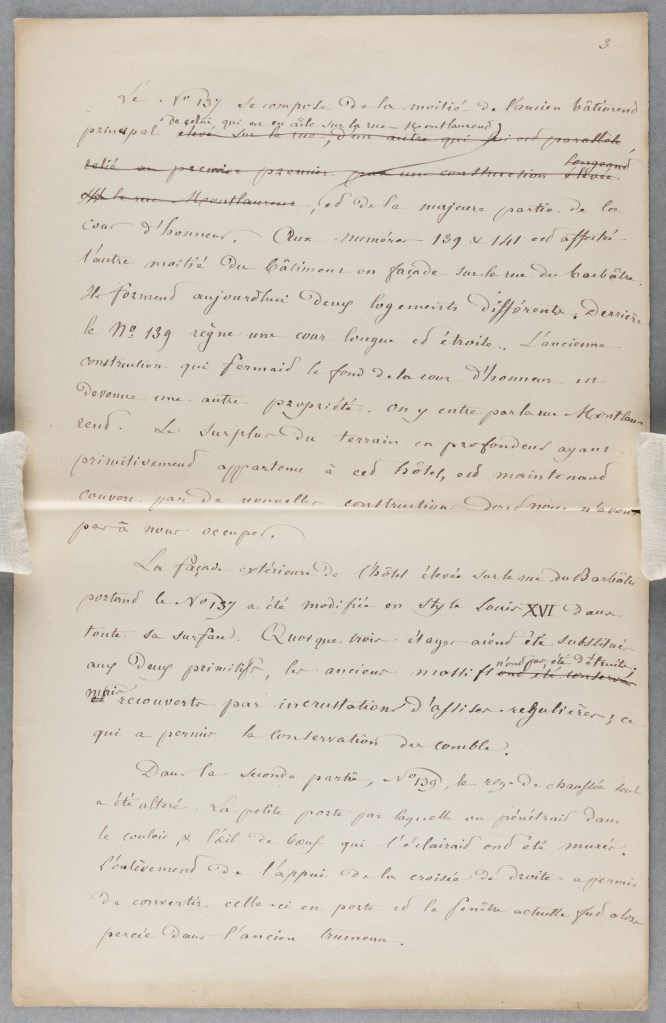 3
Le No 137 se compose de la moitié de l'ancien bâtiment
de celui qui est en aile sur la rue Montlaurend
principal élevé sur la rue, d'un autre qui lui est parallèle,
longeant
relié au premier premier par une construction élevée
la rue Montlaurent, et de la majeure partie de la
cour d'honneur. Aux numéros 139 & 141 est affectée
l'autre moitié du bâtiment en façade sur la rue du Barbâtre.
Ils forment aujourd'hui deux logements différents. Derrière
le No 139 règne une cour longue et étroite. L'ancienne
construction qui fermait le fond de la cour d'honneur est
devenue une autre propriété. On y entre par la rue Montlau-
rend. Le surplus du terrain en profondeur ayant
primitivement appartenu à cet hôtel, est maintenant
couvert par de nouvelles constructions dont nous n'avons
pas à nous occuper.
La façade extérieure de l'hôtel élevée sur la rue du Barbâtre
portant le No 137 a été modifiée en style Louis XVI dans
toute sa surface. Quoique trois étages aient été substitués
n'ont pas été détruits;
aux deux primitifs, les anciens massifs ont été conservés
mais recouverts par incrustations d'assises régulières; ce
qui a permis la conservation des combles.
Dans la seconde partie, No 139, le rez-de-chaussée seul
a été altéré. La petite porte par laquelle on pénétrait dans
le couloir, & l'œil de bœuf qui l'éclairait ont été murés.
L'enlèvement de l'appui de la croisée de droite a permis
de convertir celle-ci en porte et la fenêtre actuelle fut alors
percée dans l'ancien trumeau.